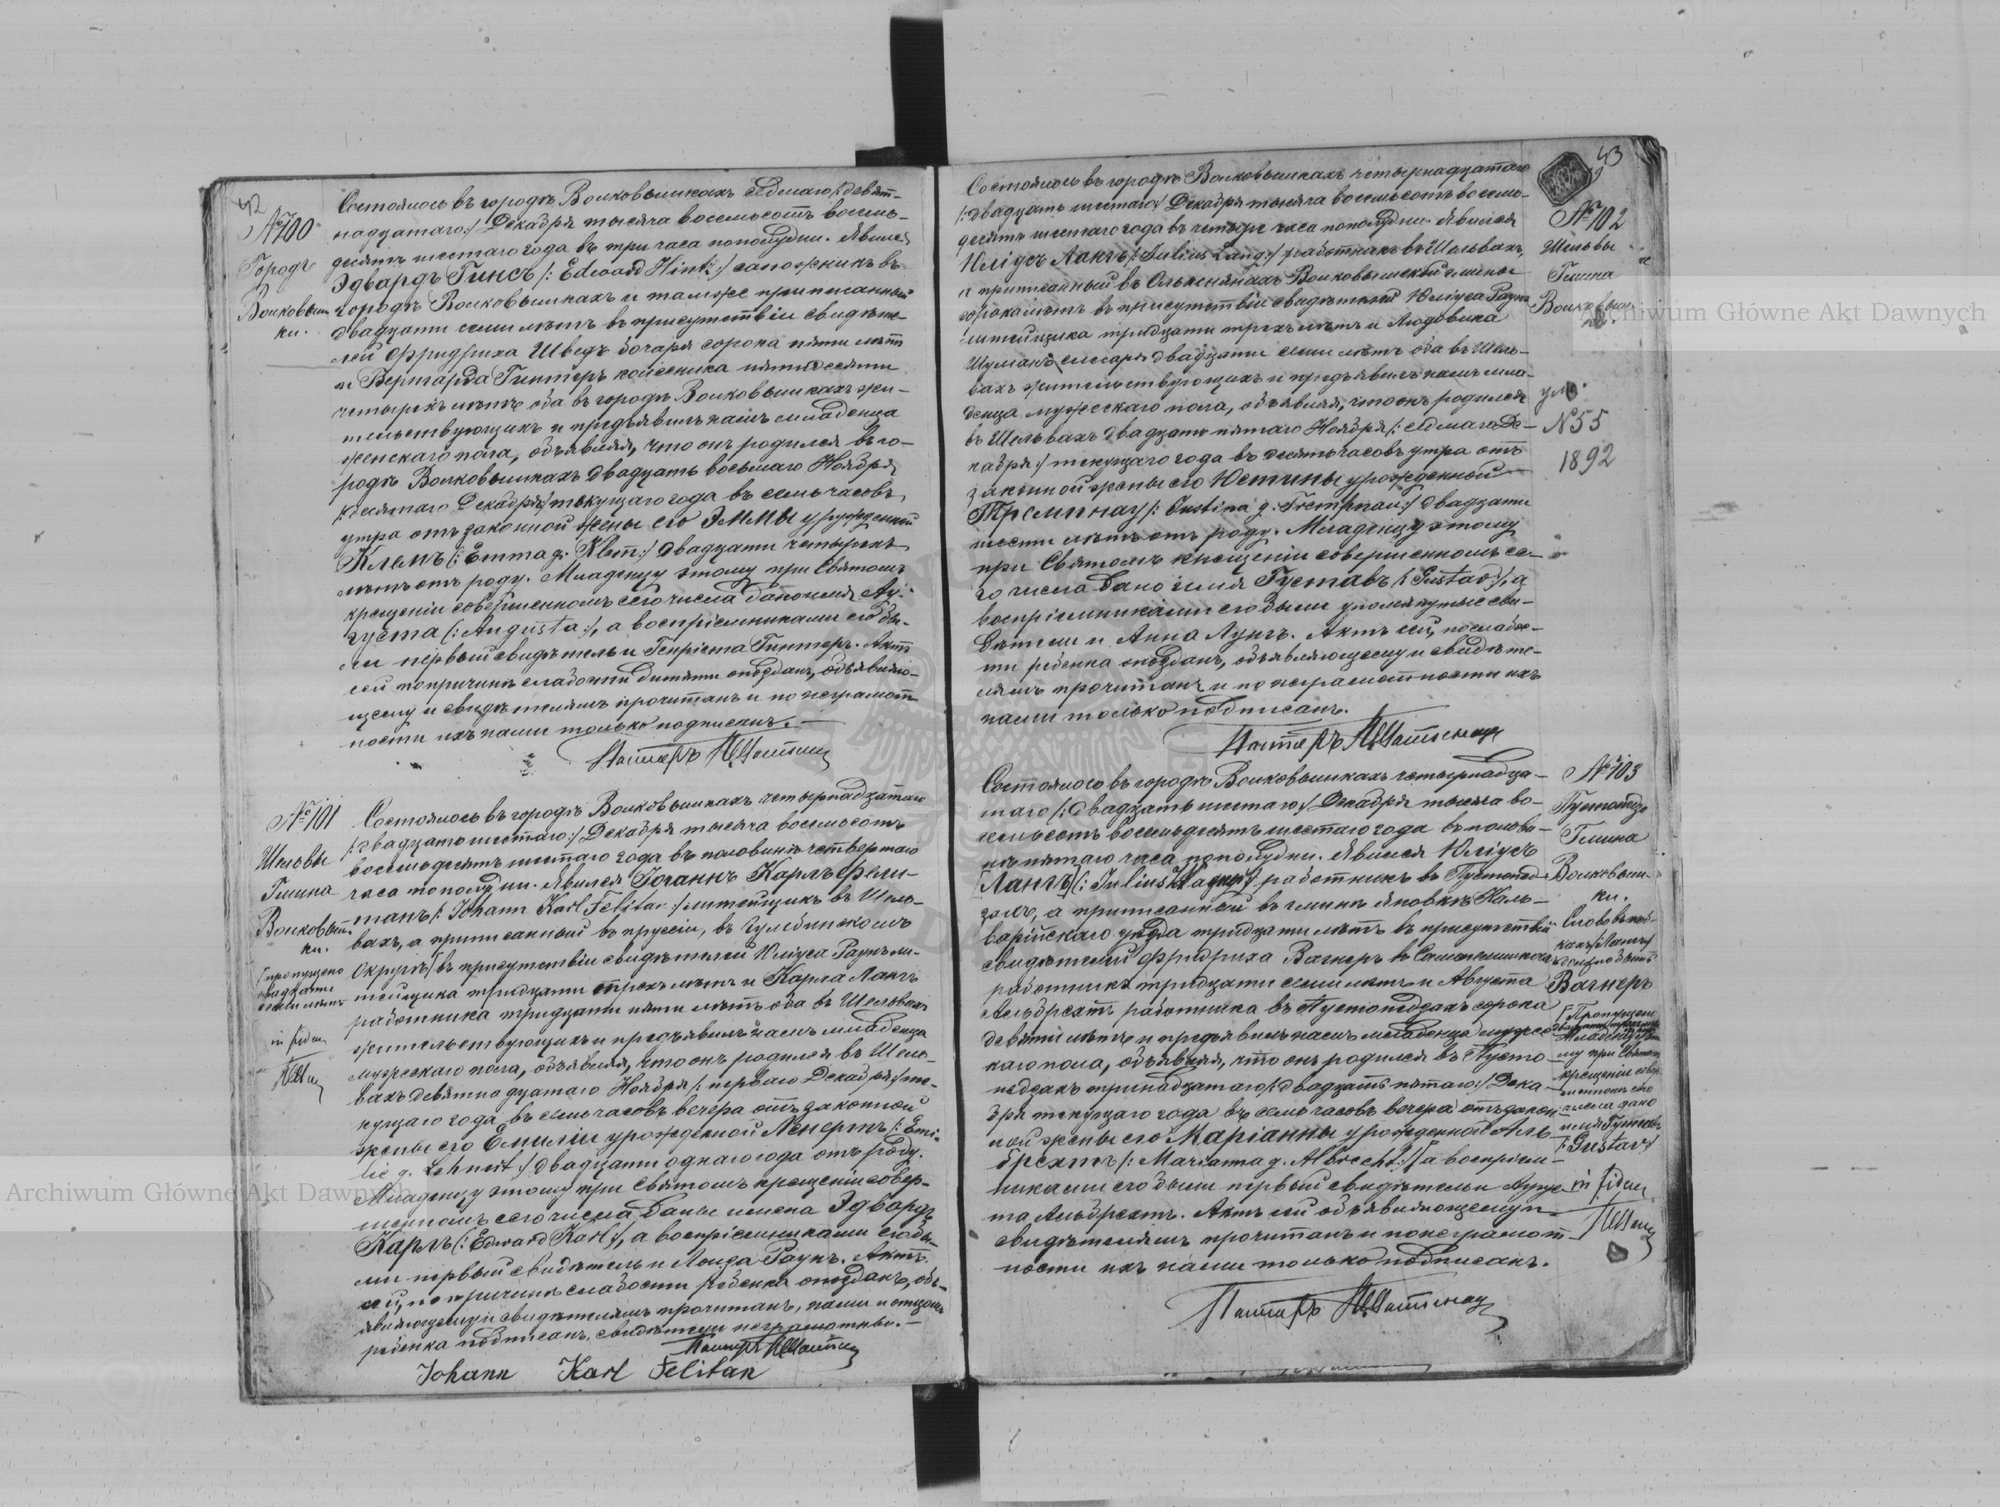 42
№ 100
Городъ
Волковыш
ки.
Состоялось въ городѣ Волковышкахъ седьмаго /: девят-
надцатаго :/ Декабря тысяча восемьсотъ восемь-
десятъ шестаго года въ три часа пополудни. Явился
Эдвардъ Гинсъ /: Edward Hint :/ сапожникъ въ
городѣ Волковышкахъ и тамже приписанный
двадцати семи лѣтъ въ присутствіи свидѣте-
лей Фридриха Шведъ бочаря сорока пяти лѣтъ
и Бернгарда Гинтеръ пятидесяти
четырехъ лѣтъ оба въ городѣ Волковышкахъ жи-
тельствующихъ и предъявилъ намъ младенца
женскаго пола, объявляя, что онъ родился въ го-
родѣ Волковышкахъ двадцать восьмаго Ноября
/: десятаго Декабря :/ текущаго года въ семь часовъ
утра отъ законной жены его Эммы урожденной
Клемъ /: Emma g. Klem :/ двадцати четырехъ
лѣтъ отъ роду. Младенцу этому при Святомъ
крещеніи совершенномъ сего числа дано имя Ав-
густа /: Augusta :/, а воспріемниками его бы-
ли первый свидѣтель и Генріета Гинтеръ. Актъ
сей по причинѣ слабости дитяти опозданъ, объявляю-
щему и свидѣтелямъ прочитанъ и по неграмот-
ности ихъ нами только подписанъ. —
Пасторъ
№ 101
Шельвы
Гмина
Волковыш
ки.
/ пропущено
двадцати
семи лѣтъ
in fidem
Состоялось въ городѣ Волковышкахъ четырнадцатаго
/: двадцать шестаго :/ Декабря тысяча восемьсотъ
восемьдесятъ шестаго года въ половинѣ четвертаго
часа пополудни. Явился Іоганнъ Карлъ Фели-
танъ /: Johann Karl Felitan :/ литейщикъ въ Шель-
вахъ, а приписанный въ Пруссіи, въ Гумбинскомъ
Округѣ / въ присутствіи свидѣтелей Юліуса Раунъ ли-
тейщика тридцати трехъ лѣтъ и Карла Лангъ
работника тридцати пяти лѣтъ оба въ Шельвахъ
жительствующихъ и предъявилъ намъ младенца
мужескаго пола, объявляя, что онъ родился въ Шель-
вахъ девятнадцатаго Ноября /: перваго Декабря :/ те-
кущаго года въ семь часовъ вечера отъ законной
жены его Емиліи урожденной Ленертъ /: Emi-
lie g. Lehnert :/ двадцати одного года отъ роду.
Младенцу этому при Святомъ крещеніи совер-
шенномъ сего числа даны имена Эдвардъ
Карлъ /: Edward Karl :/, а воспріемниками его бы-
ли первый свидѣтель и Луиза Раунъ. Актъ
сей, по причинѣ слабости ребенка опозданъ, объ-
являющему и свидѣтелямъ прочитанъ, нами и отцомъ
ребенка подписанъ, свидѣтели неграмотны. —
Пасторъ
Johann Karl Felitan
43
№ 102
Шельвы
Гмина
Волковыш
ки.
№ 55
1892
Состоялось въ городѣ Волковышкахъ четырнадцатаго
/: двадцать шестаго :/ Декабря тысяча восемьсотъ восемь-
десятъ шестаго года въ четыре часа пополудни. Явился
Юліусъ Лангъ /: Julius Lang :/ работникъ въ Шельвахъ,
а приписанный въ Волковышской гмины
сорока лѣтъ въ присутствіи свидѣтелей Юліуса Раунъ
литейщика тридцати трехъ лѣтъ и Людовика
Шуманъ слесаря двадцати семи лѣтъ оба въ Шель-
вахъ жительствующихъ и предъявилъ намъ мла-
денца мужескаго пола, объявляя, что онъ родился
въ Шельвахъ двадцать пятаго Ноября /: седьмаго Де-
кабря :/ текущаго года въ десять часовъ утра отъ
законной жены его Юстины урожденной
Тремпнау /: Justina g. Trempnau :/ двадцати
шести лѣтъ отъ роду. Младенцу этому
при Святомъ крещеніи совершенномъ се-
го числа дано имя Густавъ /: Gustav :/, а
воспріемниками его были упомянутые сви-
дѣтели и Анна Лунгъ. Актъ сей, по слабос-
ти ребенка опозданъ, объявляющему и свидѣте-
лямъ прочитанъ и по неграмотности ихъ
нами только подписанъ.
Пасторъ
№ 103
Гмина
Волковыш-
ки.
Вагнеръ
/ Пропущен
Младенцу это-
му при Святомъ
крещеніи совер-
шенномъ сего
числа дано
имя Густавъ
/ Gustav /
in fidem
Состоялось въ городѣ Волковышкахъ четырнадца-
таго /: двадцать шестаго :/ Декабря тысяча во-
семьсотъ восемьдесятъ шестаго года въ полови-
нѣ пятаго часа пополудни. Явился Юліусъ
/ Лангъ / /: Julius Wagner :/ работникъ въ Пустопед-
захъ, а приписанный въ гминѣ Яновкѣ Каль-
варійскаго уѣзда тридцати лѣтъ въ присутствіи
свидѣтелей Фридриха Вагнеръ въ
работника тридцати семи лѣтъ и Августа
Альбрехтъ работника въ Пустопедзахъ сорока
девяти лѣтъ и предъявилъ намъ младенца мужес-
каго пола, объявляя, что онъ родился въ Пусто-
педзахъ тринадцатаго /: двадцать пятаго :/ Дека-
бря текущаго года въ семь часовъ вечера отъ закон-
ной жены его Маріанны урожденной Аль-
брехтъ /: Marianna g. Albrecht :/ / а воспріем-
никами его были первый свидѣтель и Авгус-
та Альбрехтъ. Актъ сей объявляющему и
свидѣтелямъ прочитанъ и по неграмот-
ности ихъ нами только подписанъ.
Пасторъ
Archiwum Główne Akt Dawnych
Archiwum Główne Akt Dawnych